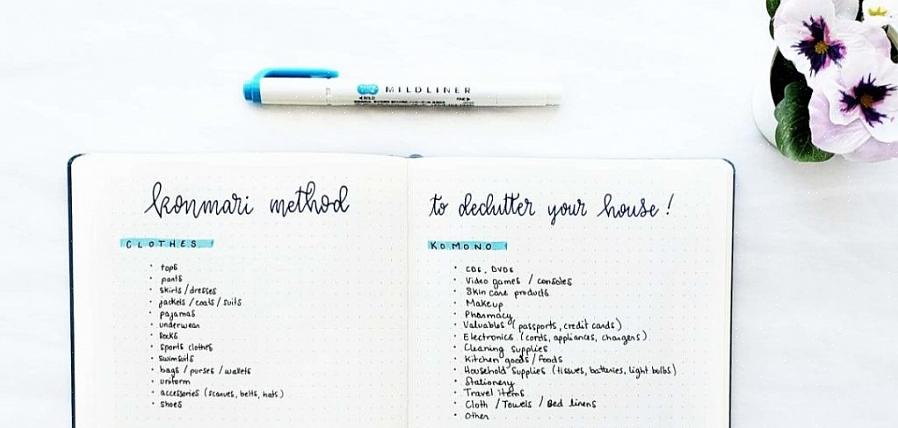 MILDLINER
konmari method
to declutter your house!
CLOTHES
• tops
• pants
• skirts / dresses
• jackets / coats / suits
• pajamas
• underwear
• socks
• sports clothes
• swimsuits
• bags / purses / wallets
• uniform
• accessories (scarves, belts, hats)
• shoes
KOMONO
• CDs, DVDs
• Video games / consoles
• Skin care products
• Makeup
• Pharmacy
• Valuables (passports, credit cards)
• Electronics (cords, appliances, chargers)
• Cleaning supplies
• Kitchen goods / foods
• Household supplies (tissues, batteries, light bulbs)
• Stationery
• Travel items
• Cloth / Towels / Bed linens
• Other